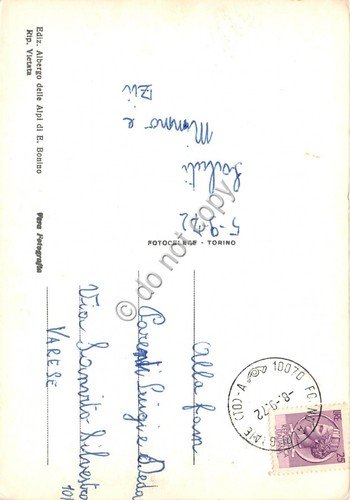 Ediz. Albergo delle Alpi di E. Bonino
Rip. Vietata
Vera Fotografia
FOTOCELERE - TORINO
5-9-72
Saluti
Mimmo e
Zii
Alla fam
Parenti Luigi e
Via Sanvito Silvestro
101
VARESE
10070
(TO) - A
-8-9.72
© do not copy